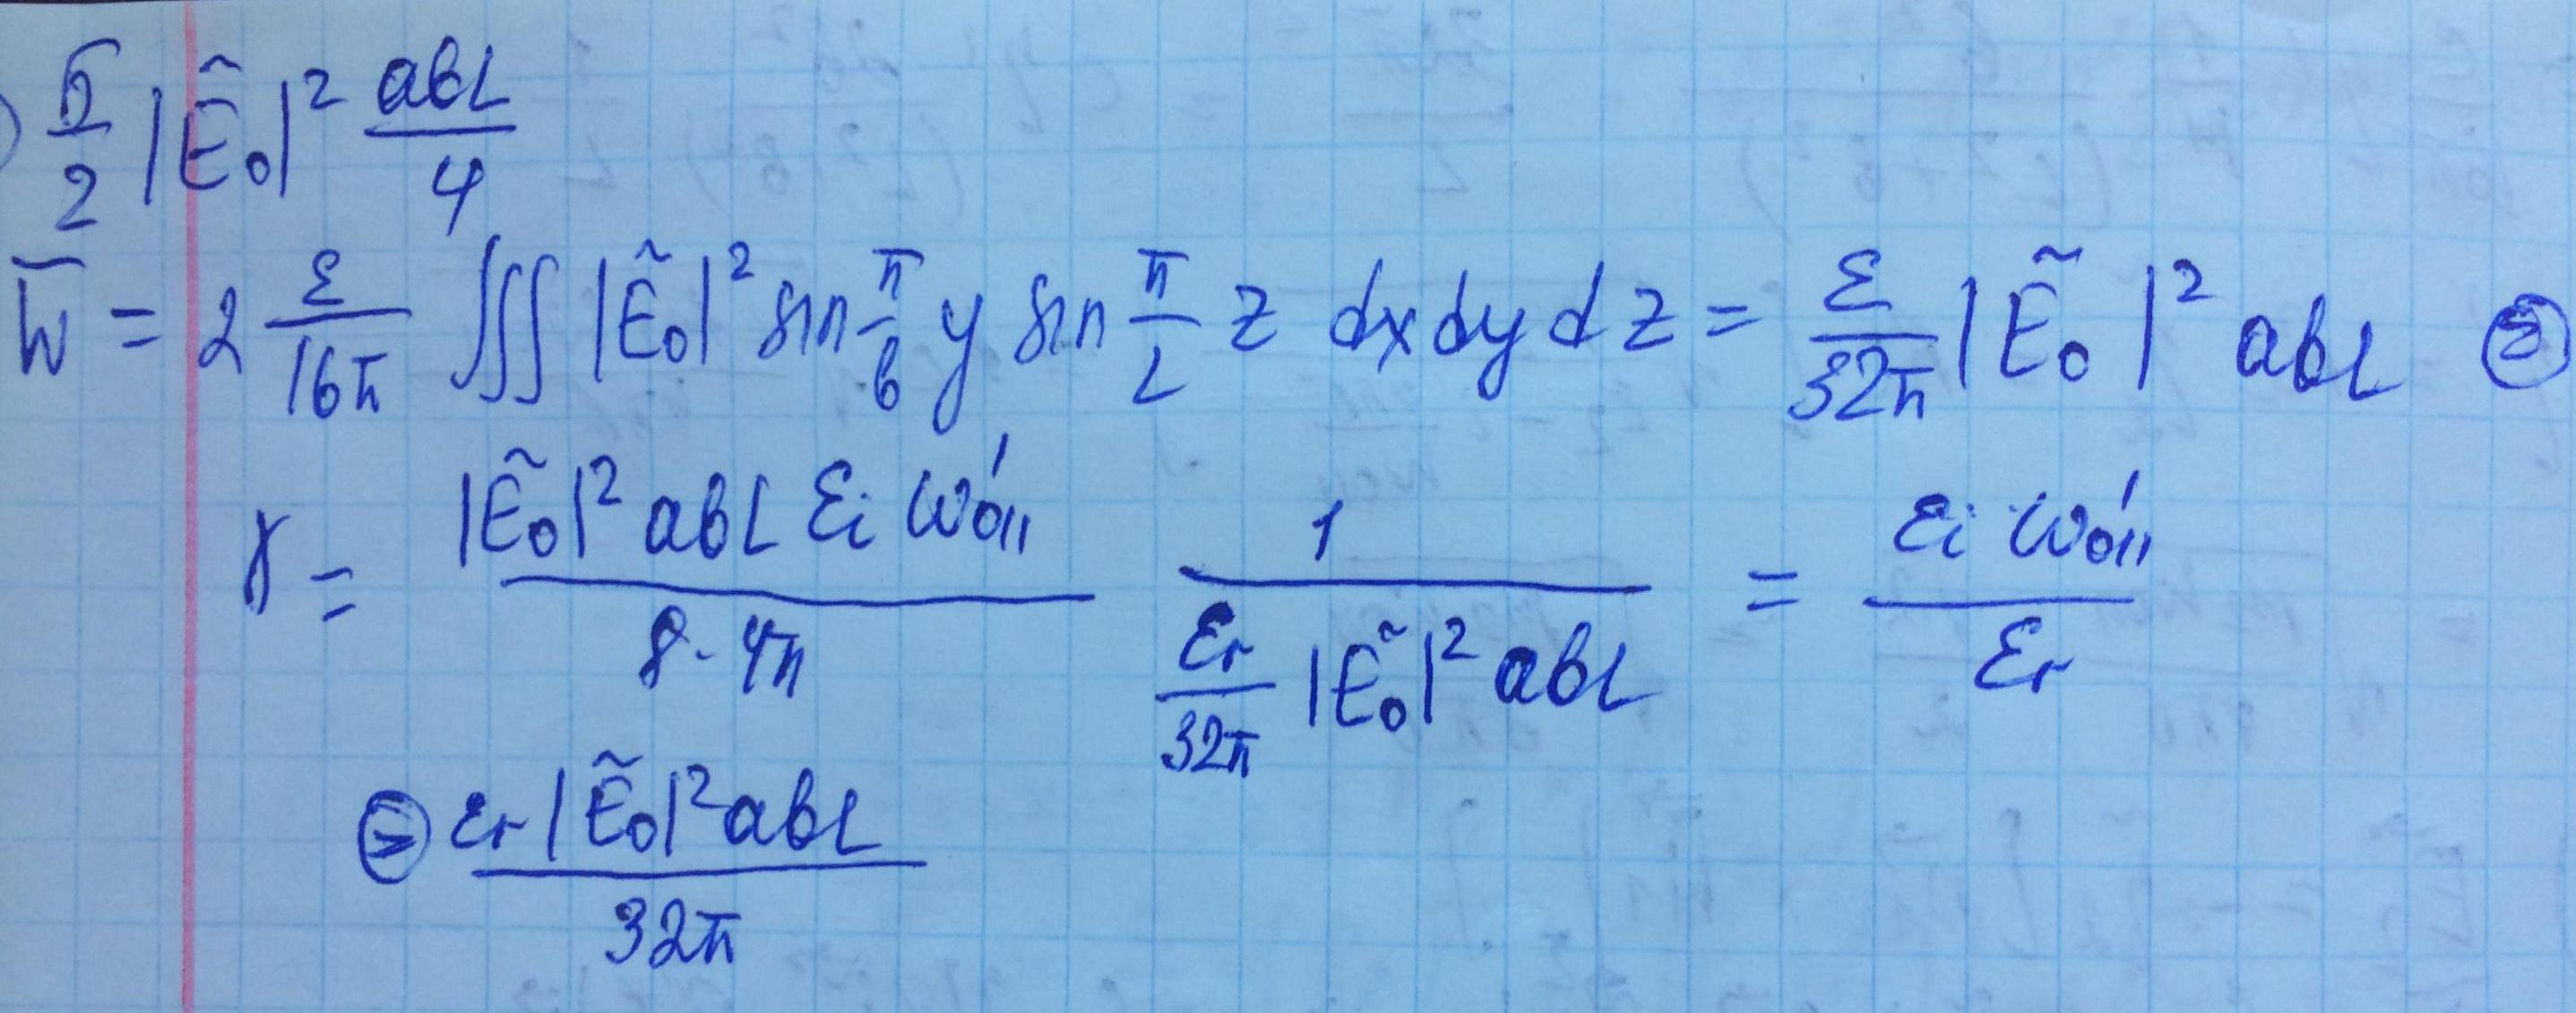 σ/2 |Ẽ₀|² abL/4
W̅ = 2 ε/16π ∭ |Ẽ₀|² sin π/b y sin π/L z dx dy dz = ε/32π |Ẽ₀|² abL ⊜
γ = |Ẽ₀|² abL εi ω'₀₁₁ / 8·4π 1 / (εr/32π |Ẽ₀|² abL) = εi ω'₀₁₁ / εr
⊜ εr |Ẽ₀|² abL / 32π